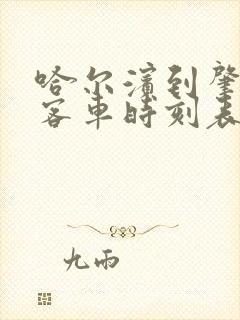 哈尔滨到肇
客车时刻表
九雨